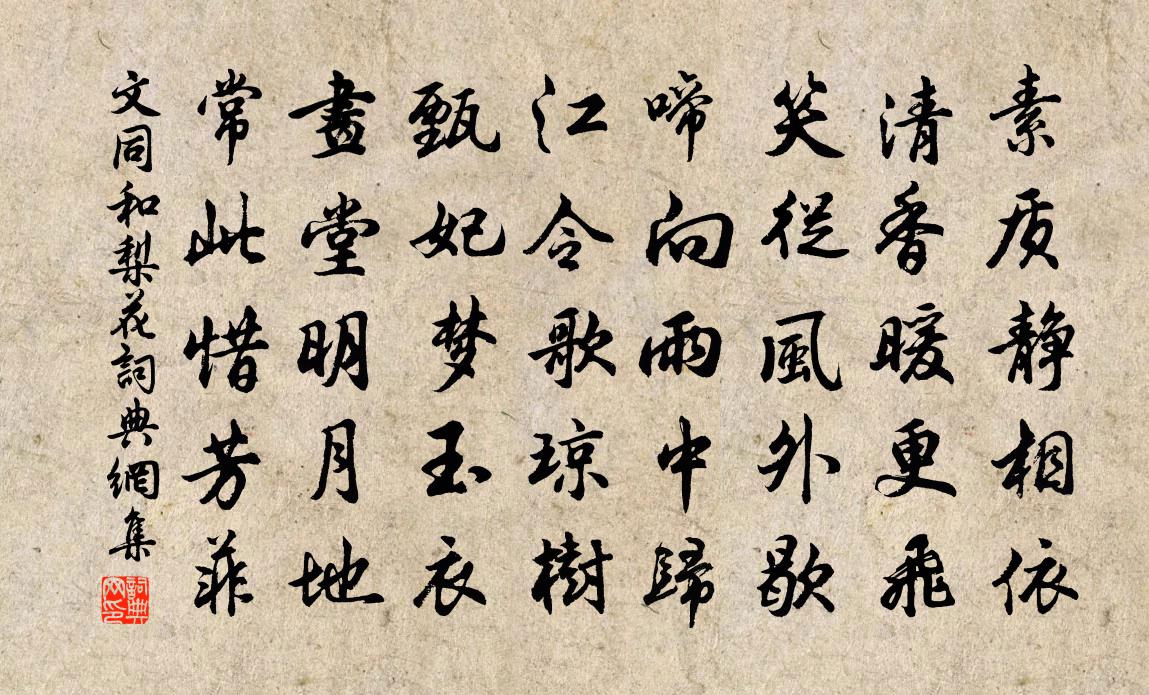 素质静相依
清香暖更飛
笑從風外歇
啼向雨中歸
江令歌琼樹
甄妃梦玉衣
畫堂明月地
常此惜芳菲
文同和梨花詞典網集
詞典
网印